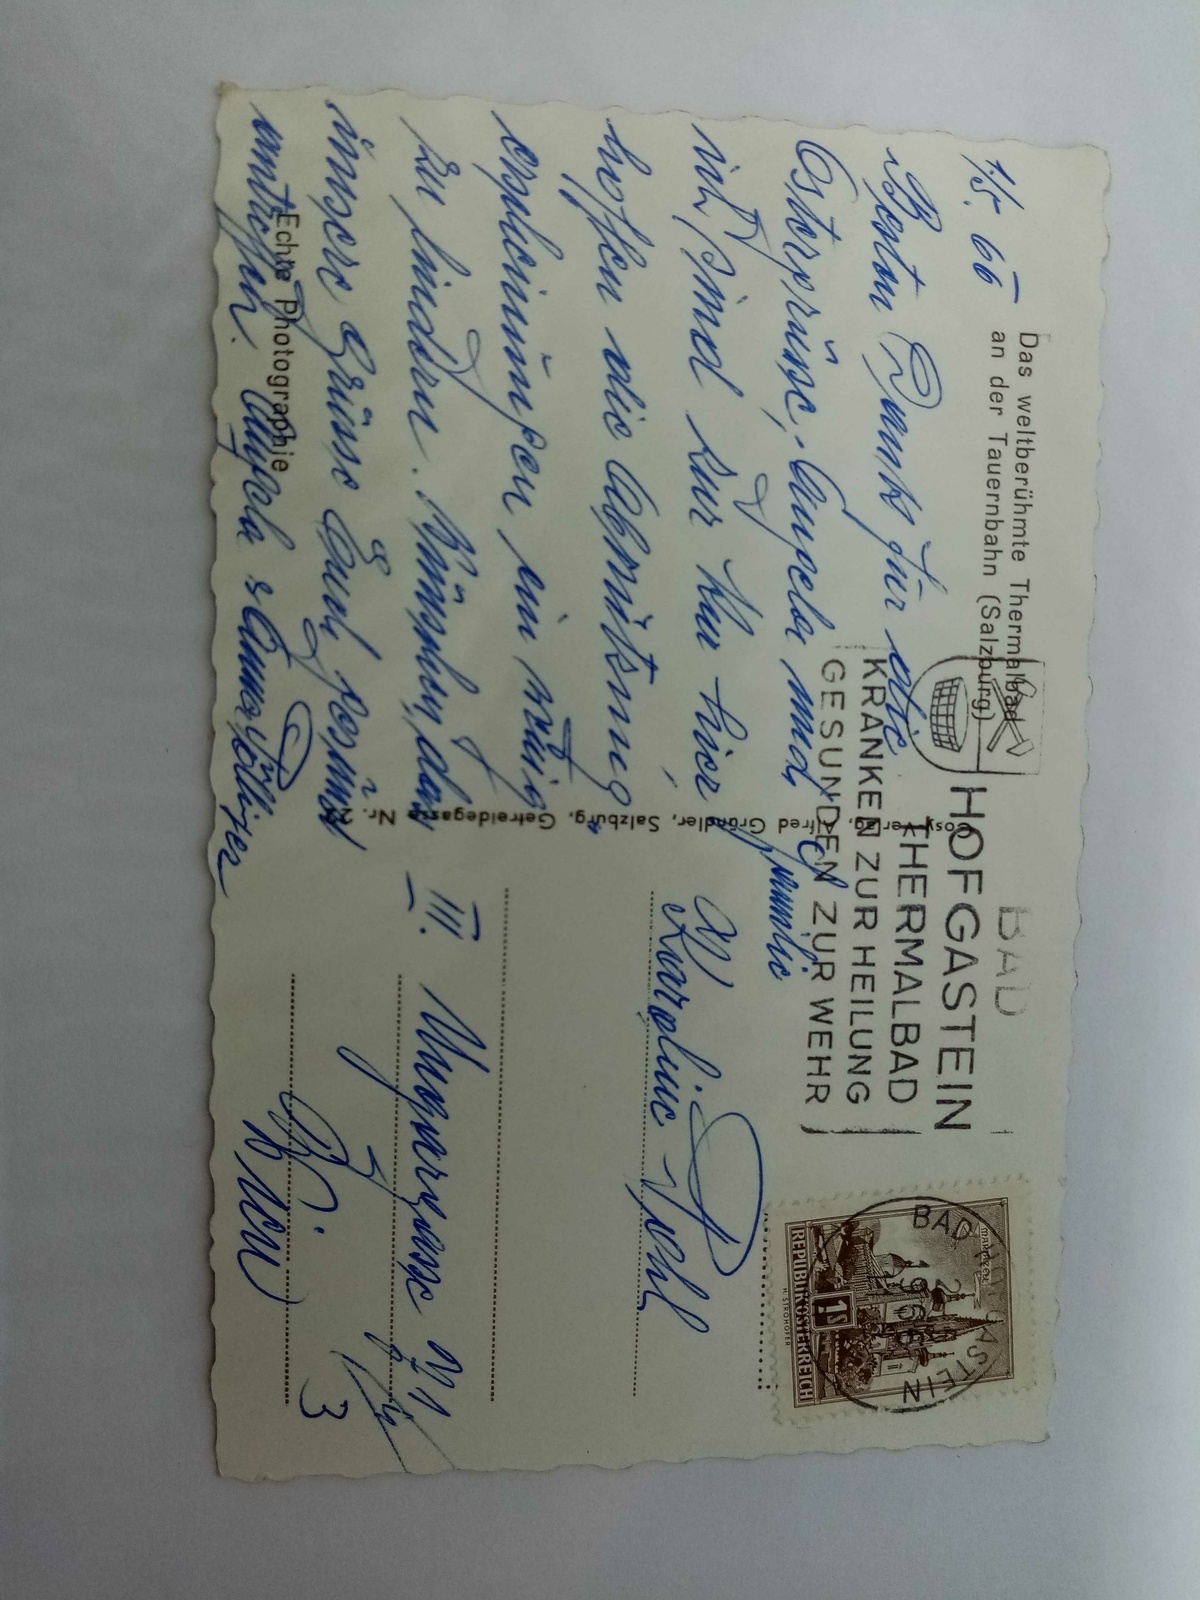 Das weltberühmte Thermalbad
an der Tauernbahn (Salzburg)
1/5. 66
Besten Dank für die
Ostergrüsse, Angela und
ich sind zur Kur hier
hoffen die Abnützung
erscheinungen ein wenig
zu lindern. Wünschen, dass
unsere Grüsse Euch gesund
antreffen. Angela & Anna
Echte Photographie
Cosy-Verlag, Alfred Gründler, Salzburg, Getreidegasse Nr. 22
BAD
HOFGASTEIN
THERMALBAD
KRANKEN ZUR HEILUNG
GESUNDEN ZUR WEHR
BAD HOFGASTEIN
1966
MARIAZELL
1S
REPUBLIK ÖSTERREICH
H. STROHOFER
Familie
Karoline Pohl
III.
Wien
3